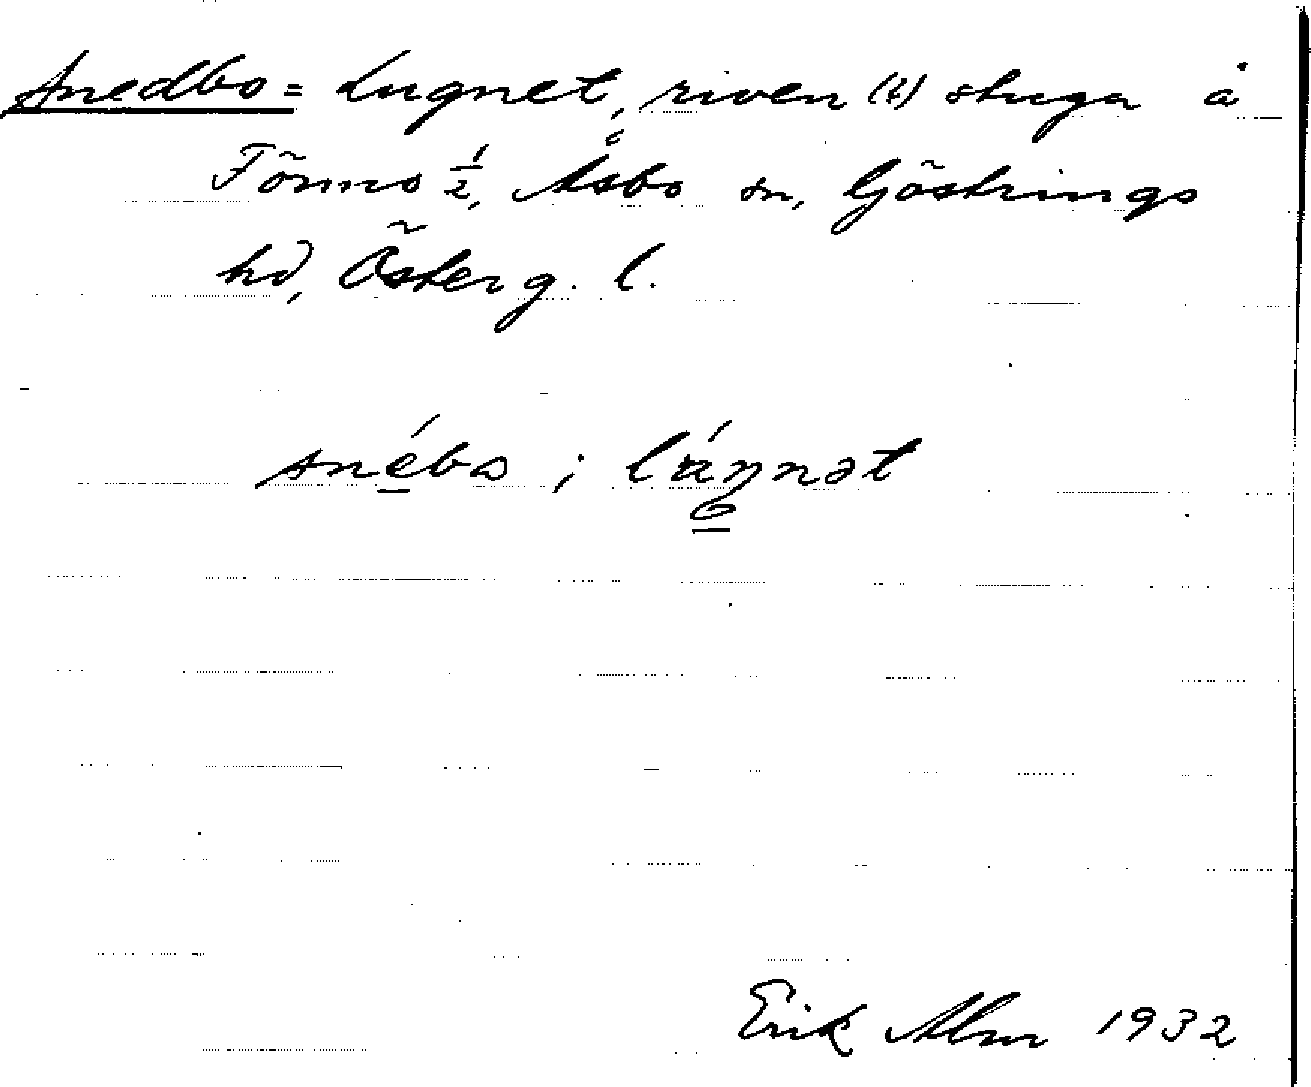 Snedbo = Lugnet, riven (t) stuga å
Tömno 1/2, Åsbo sn, Göstrings
hd, Österg. l.
snéba ; láŋnət
Erik Alm 1932